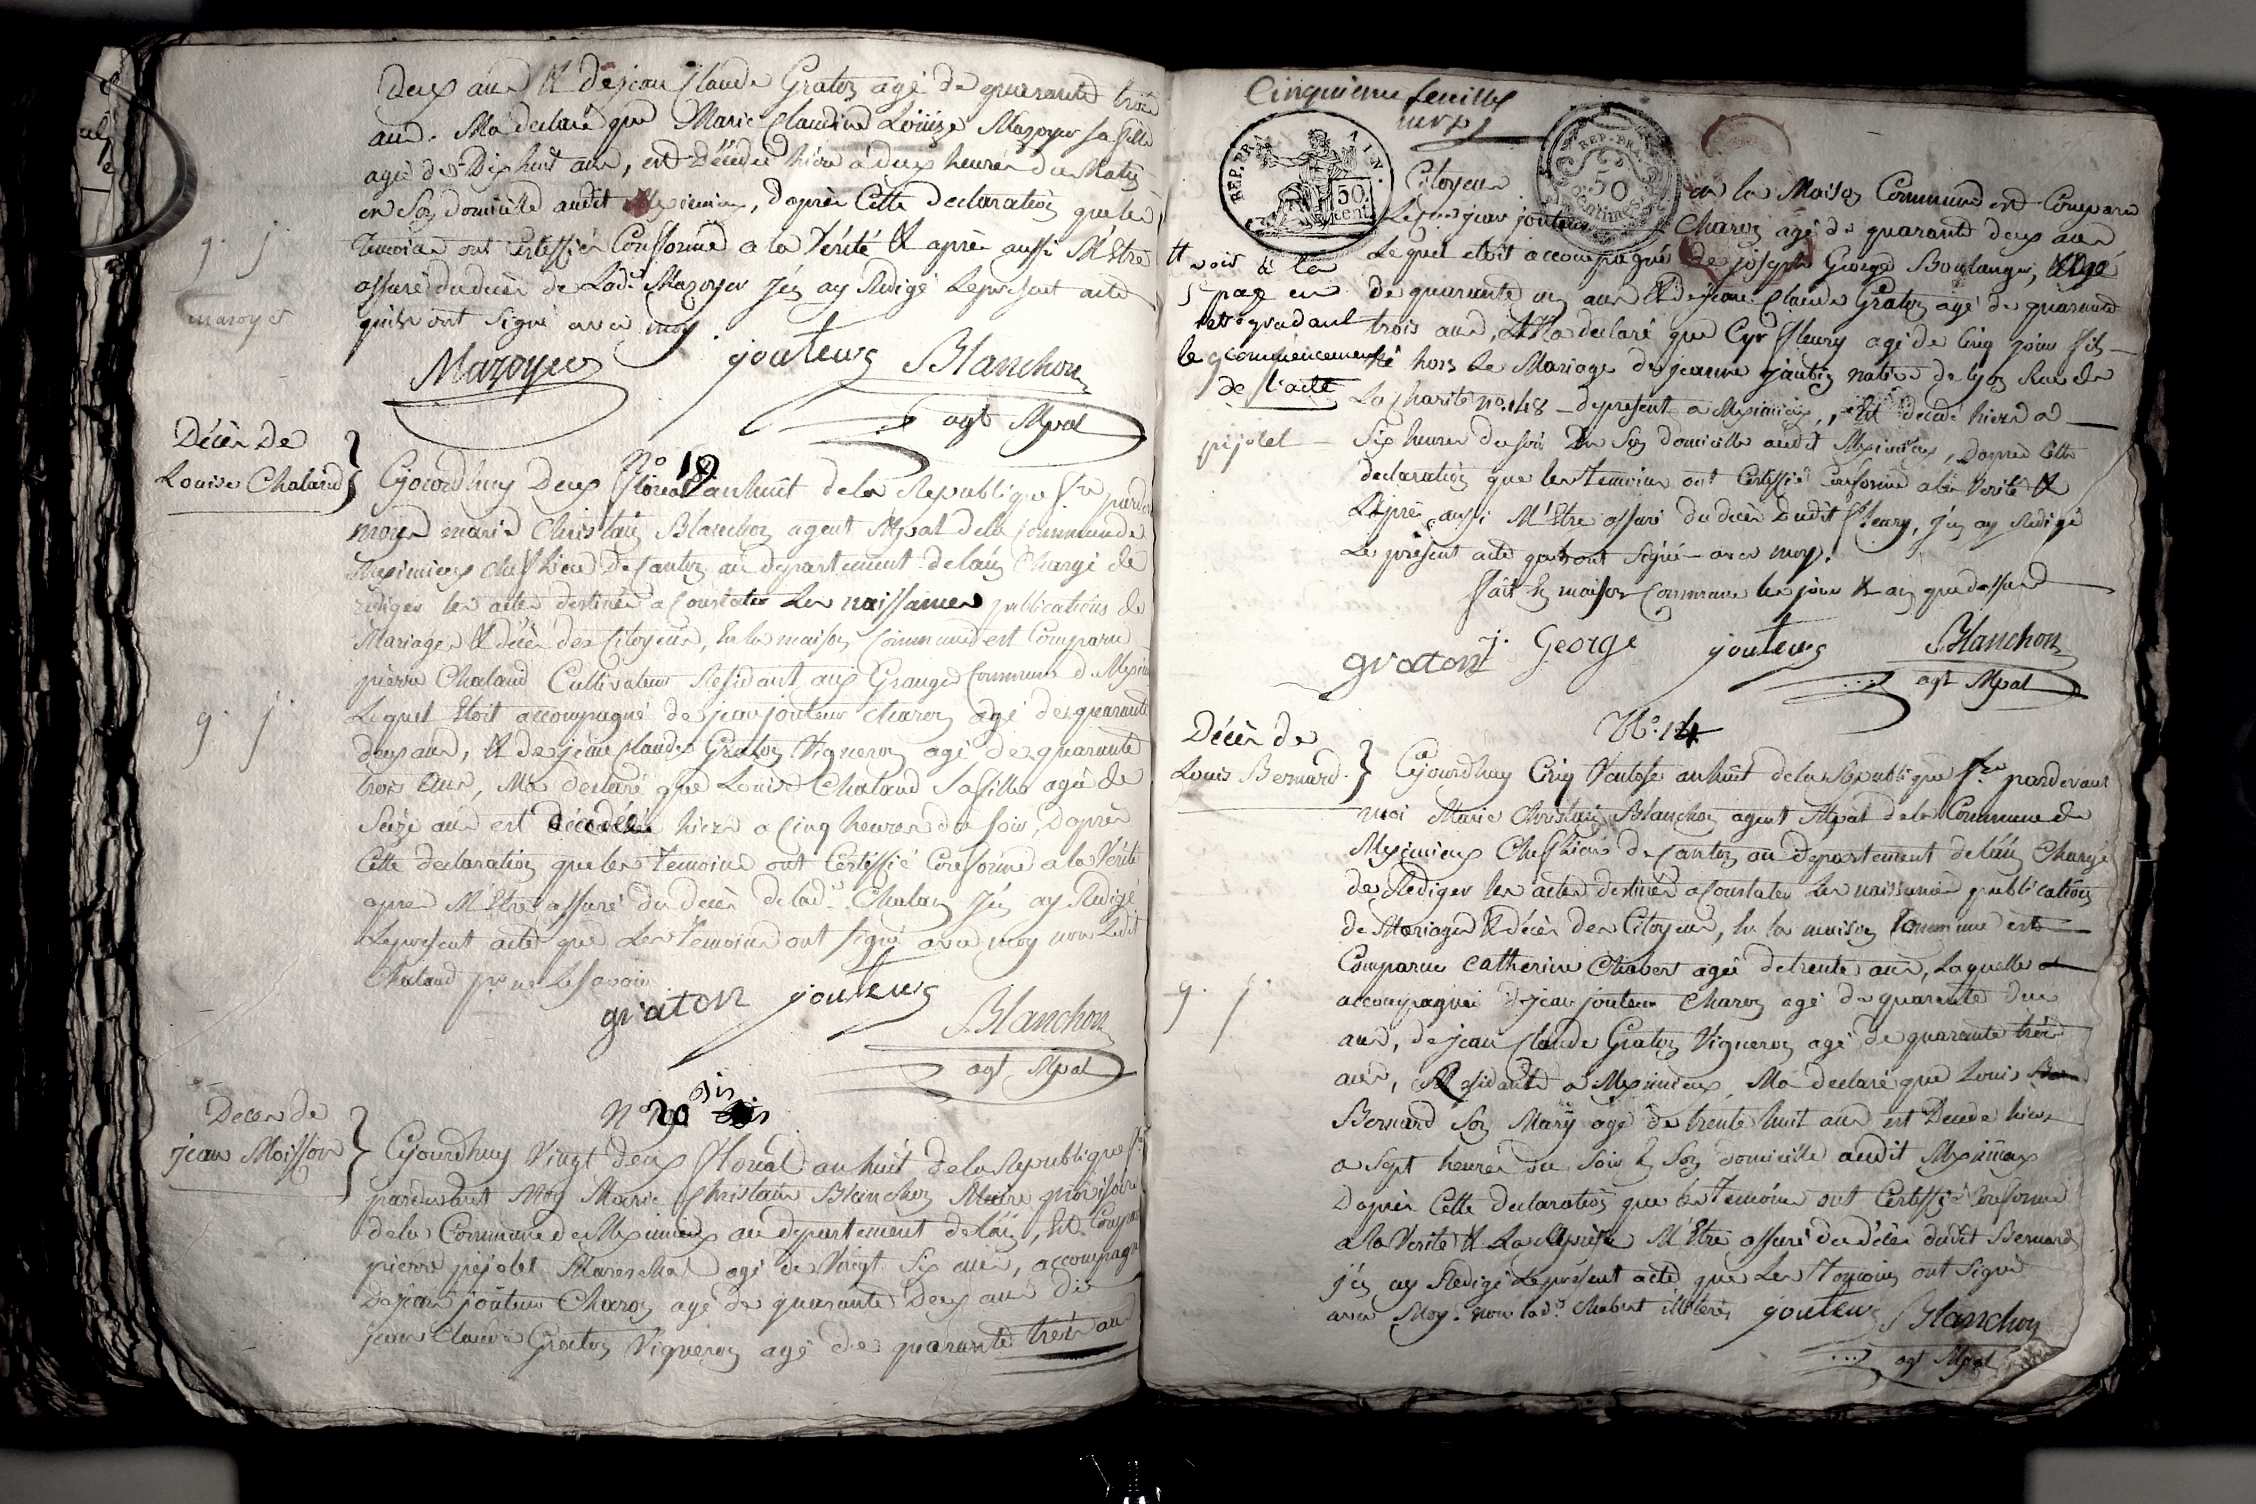 Deux ans & de jean Claude Graton agé de quarante trois
ans. M'a declaré que Marie Claudine Louise Mazoyer sa fille
agée de Dix huit ans, est Décédée hier à deux heures du Matin
en Son domicille audit Meximieux, d'après Cette declaration que les
Temoins ont Certiffié Conforme a la Vérité & après aussi M'Etre
assuré du decès de Lad.e Mazoyer j'en ay Redigé Le present acte
qu'ils ont Signé avec moy.
g. j.
mazoyer
Mazoyer jouteur Blanchon
agt Mpal
Décès de
Louise Chaland
No 19
Cejourdhuy Deux floreal an huit de la Republique f.se pardevant
moy marie Christain Blanchon agent Mpal de la Commune de
Meximieux chef Lieu de Canton au departement de L'ain Chargé de
rediger les actes destinés a Constater Les naissances publications de
Mariages & décès des Citoyens, En la maison Commune est Comparu
pierre Chaland Cultivateur Residant aux Granges Commune de Meximieux
Lequel Etoit accompagné de jean jouteur Charon agé de quarante
deux ans, & de jean Claude Graton Vigneron agé de quarante
trois ans, M'a declaré que Louise Chaland Sa fille agée de
Seize ans est décédée hier a Cinq heures du soir, D'après
Cette declaration que les Temoins ont Certiffié Conforme a la Vérité
après M'Etre assuré du decès de lad.e Chaland j'en ay Redigé
Le present acte que Les Temoins ont Signé avec moy non Ledit
Chaland p.r ne Le savoir
g. j.
graton jouteur
Blanchon
agt Mpal
Deces de
jean Moisson
No 20 bis
Cejourdhuy Vingt deux floréal an huit de la Republique f.se
pardevant Moy Marie Christain Blanchon Maire provisoire
de la Commune de Meximieux au departement de L'ain, Est Comparu
pierre pejolet Marechal agé de Vingt Six ans, accompagné
De jean jouteur Charon agé de quarante Deux ans de
jean Claude Graton Vigneron agé de quarante trois ans
Cinquieme feuillet
REP. FRA.
50
cent.
REP. FRA.
50
centimes
Citoyens
jean jouteur Charon agé de quarante deux ans
en la Maison Commune est Comparu
Lequel etoit accompagné de joseph George Boulanger, agé
de quarante un ans & de jean Claude Graton agé de quarante
trois ans, M'a declaré que Cyr fleury agé de Cinq jours fils
né hors Le Mariage de jeanne jantin native de lyon Rue de
La Charité no 148 de present a Meximieux, Est decedé hier a
Six heures du soir En Son domicille audit Meximieux, D'après Cette
declaration que les temoins ont Certiffié Conforme a la Verité &
après aussi M'Etre assuré du decès Dudit fleury, j'en ay Redigé
Le présent acte qu'ils ont Signé avec moy.
fait En maison Commune les jour & an que dessus
voir à la
5e page en
retrogradant
le commencement
de l'acte
pejolet
graton j. George jouteur Blanchon
agt Mpal
Décès de
Louis Bernard
No. 14
Cejourdhuy Cinq Ventose an huit de la Republique f.se pardevant
moi Marie Christain Blanchon agent Mpal de la Commune de
Meximieux Chef Lieu de Canton au Departement de L'ain Chargé
de Rediger les actes destinés a Constater Les naissances publications
de Mariages & décès des Citoyens, En la maison Commune est
Comparue Catherine Chabert agée de trente ans, Laquelle
accompagnée de jean jouteur Charon agé de quarante deux
ans, de jean Claude Graton Vigneron agé de quarante trois
ans, Residants a Meximieux, M'a declaré que Louis
Bernard Son Mary agé de trente huit ans est Decedé hier
a Sept heures du Soir En Son domicille audit Meximieux
D'après Cette declaration que les Temoins ont Certiffié Conforme
a la Verité & après M'Etre assuré du décès dudit Bernard
j'en ay Redigé Le présent acte que Les Temoins ont Signé
avec Moy. non lad.e Chabert illeteré
g. j.
jouteur Blanchon
agt Mpal